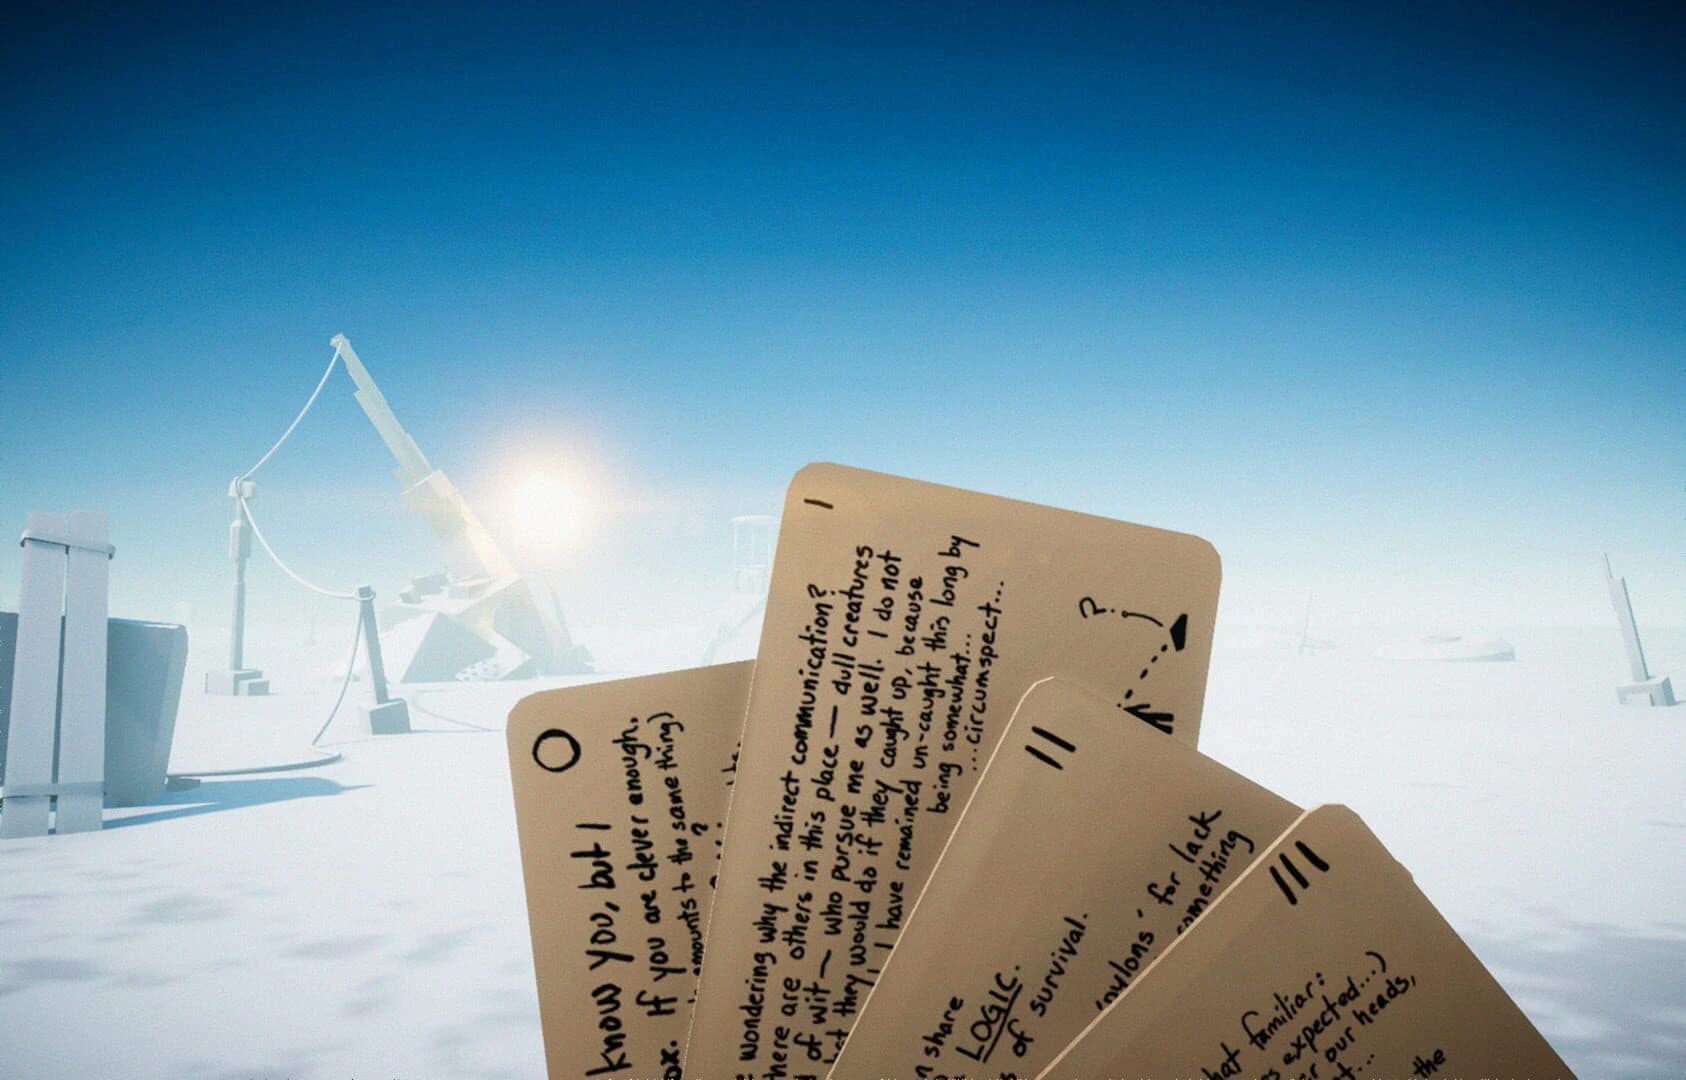 O
know you, but I
ox. If you are clever enough,
amounts to the same thing)
?
I
wondering why the indirect communication?
here are others in this place — dull creatures
of wit — who pursue me as well. I do not
they would do if they caught up, because
I have remained un-caught this long by
being somewhat...
...circumspect...
?
II
share
LOGIC.
of survival.
'pylons' for lack
something
III
hat familiar:
s expected...)
r our heads,
t...
the